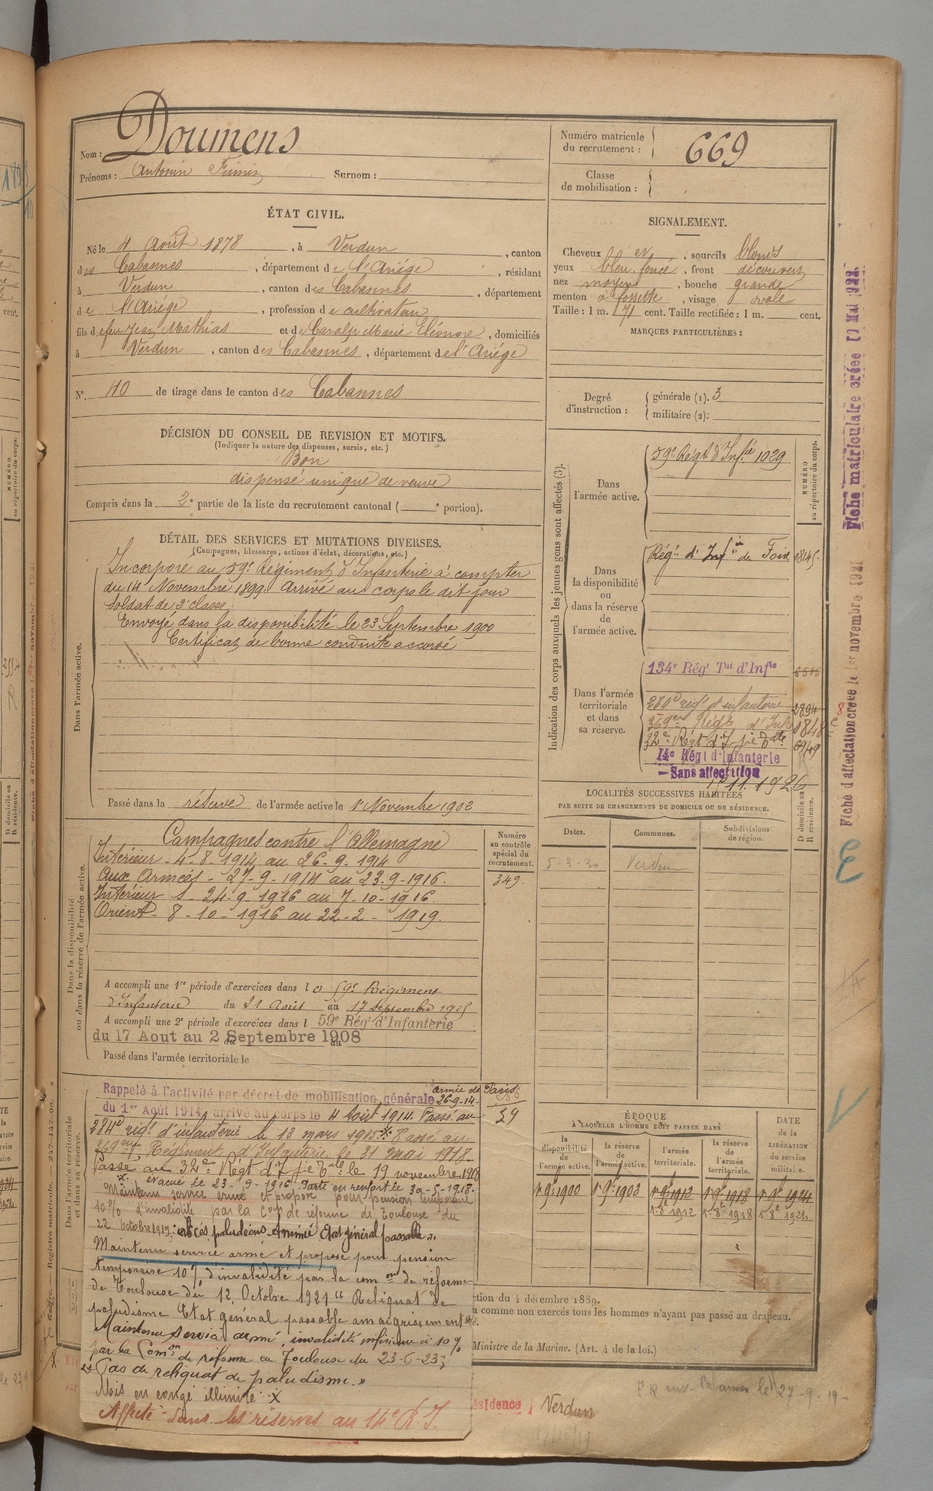 Nom : Doumens
Prénoms : Antonin Surnom :
Numéro matricule du recrutement : 669
Classe de mobilisation :
ÉTAT CIVIL.
Né le 4 Août 1878, à Verdun, canton
des Cabannes, département de l'Ariège, résidant
à Verdun, canton des Cabannes, département
de l'Ariège, profession de cultivateur
fils de feu Jean Mathias et de Caralp Marie Eléonore, domiciliés
à Verdun, canton des Cabannes, département de l'Ariège
N° 40 de tirage dans le canton des Cabannes
SIGNALEMENT.
Cheveux et, sourcils blonds
yeux bleu foncé, front découvert
nez moyen, bouche grande
menton à fossette, visage ovale
Taille : 1 m. 71 cent. Taille rectifiée : 1 m. cent.
MARQUES PARTICULIÈRES :
Degré d'instruction : générale (1). 3
militaire (2).
DÉCISION DU CONSEIL DE REVISION ET MOTIFS.
(Indiquer la nature des dispenses, sursis, etc.)
Bon
dispensé unique de veuve
Compris dans la 2e partie de la liste du recrutement cantonal ( e portion).
DÉTAIL DES SERVICES ET MUTATIONS DIVERSES.
(Campagnes, blessures, actions d'éclat, décorations, etc.)
Dans l'armée active.
Incorporé au 59e Régiment d'Infanterie à compter
du 14 Novembre 1899. Arrivé au corps le dit jour
soldat de 2e classe.
Envoyé dans la disponibilité le 23 Septembre 1900
Certificat de bonne conduite accordé
Passé dans la réserve de l'armée active le 1er Novembre 1902
Indication des corps auxquels les jeunes gens sont affectés (3).
NUMÉRO au répertoire du corps.
Dans l'armée active.
59e Régt d'Infie 1929
Dans la disponibilité ou dans la réserve de l'armée active.
Régt d'Infie de Foix
Dans l'armée territoriale et dans sa réserve.
134e Régt Tal d'Infie
369e Régt d'Inf
14e Régt d'Infanterie
Sans affectation
11.1926
LOCALITÉS SUCCESSIVES HABITÉES
PAR SUITE DE CHANGEMENTS DE DOMICILE OU DE RÉSIDENCE.
Dates. Communes. Subdivisions de région. D domicile ou R résidence.
5-3-30 Verdun
Dans la disponibilité ou dans la réserve de l'armée active.
Campagnes contre l'Allemagne
Intérieur - 4-8-1914 au 26-9-1914
Aux Armées - 27-9-1914 au 23-9-1916.
Intérieur - 24-9-1916 au 7-10-1916
Orient - 8-10-1916 au 22-2-1919.
Numéro au contrôle spécial du recrutement.
349
A accompli une 1re période d'exercices dans le 59e Régiment
d'Infanterie du 21 Août au 17 Septembre 1905
A accompli une 2e période d'exercices dans l 59e Régt d'Infanterie
du 17 Aout au 2 Septembre 1908
Passé dans l'armée territoriale le
Dans l'armée territoriale et dans sa réserve.
Rappelé à l'activité par décret de mobilisation générale
du 1er Août 1914, arrivé au corps le 4 Août 1914. Passé au
régt d'infanterie le 13 mars 1915. Passé au
Régiment d'Infanterie le 31 mai 1918.
Passé au 32e Régt le 19 novembre 1918
x évacué le 23-9-1916. Parti en renfort le
Maintenu service armé et proposé pour pension temporaire
10% d'invalidité par la Com de réforme de Toulouse du
22 octobre 1919: accès paludéens - Anémie Etat général passable".
Maintenu service armé et proposé pour pension
temporaire 10% d'invalidité par la comon de réforme
de Toulouse du 12 Octobre 1921 "Reliquat de
paludisme Etat général passable amaigrissement"
Maintenu service armé, invalidité inférieure à 10%
par la Comon de réforme de Toulouse du 23-6-23;
"Pas de reliquat de paludisme."
Mis en congé illimité. X
Affecté dans les réserves au 14e R I.
armée de Paris
26-9-14.
ÉPOQUE
À LAQUELLE L'HOMME DOIT PASSER DANS
la disponibilité de l'armée active.
la réserve de l'armée active.
l'armée territoriale.
la réserve de l'armée territoriale.
DATE de la LIBÉRATION du service militaire.
ction du 4 décembre 1889.
a comme non exercés tous les hommes n'ayant pas passé au drapeau.
Ministre de la Marine. (Art. 4 de la loi.)
sidence Verdun
27-9-19-
Fiche matriculaire créée 17 Mai 1922.
Fiche d'affectation créée le 1er novembre 1921